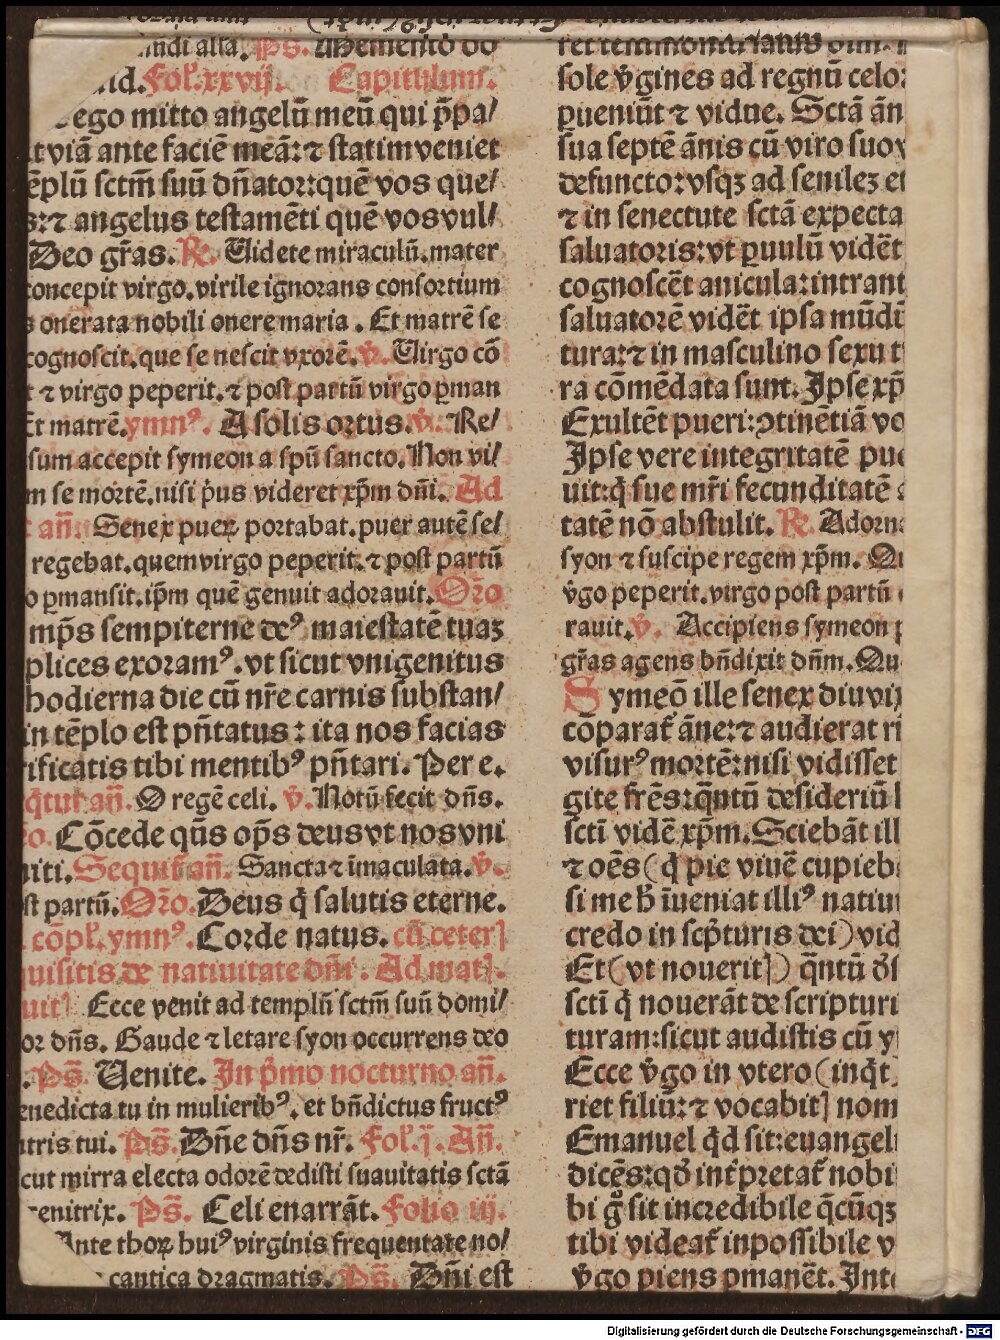 mdi alla. Ps. Memento do
id. Fol. xxvij. Capitulum.
ego mitto angelū meū qui p̄pa/
t viā ante faciē meā: ⁊ statim veniet
ēplū sctm̄ suū dn̄ator: quē vos que/
s: ⁊ angelus testamēti quē vos vul/
Deo gr̄as. R̄. Uidete miraculū. mater
concepit virgo. virile ignorans consortium
s onerata nobili onere maria. Et matrē se
cognoscit. que se nescit vxorē. v̄. Uirgo cō
t ⁊ virgo peperit. ⁊ post partū virgo ꝑman
Et matrē. ymnꝰ. A solis ortus. v̄. Re/
sum accepit symeon a spū sancto. Non vi/
m se mortē. nisi p̄us videret xp̄m dn̄i. Ad
t an̄. Senex pueꝝ portabat. puer autē se/
regebat. quem virgo peperit. ⁊ post partū
o ꝑmansit. ip̄m quē genuit adorauit. Or̄o
mp̄s sempiterne deꝰ maiestatē tuaꝫ
plices exoramꝰ. vt sicut vnigenitus
hodierna die cū nr̄e carnis substan/
in tēplo est pn̄tatus: ita nos facias
rificatis tibi mentibꝰ pn̄tari. Per e.
q̄tur an̄. O regē celi. v̄. Notū fecit dn̄s.
o. Cōcede qūs op̄s deus vt nos vni
niti. Sequit᷑ an̄. Sancta ⁊ īmaculata. v̄.
st partū. Or̄o. Deus q̄ salutis eterne.
cōpl̄. ymnꝰ. Corde natus. cū ceter]
quisitis de natiuitate dn̄i. Ad mat].
uit] Ecce venit ad templū sctm̄ suū domi/
or dn̄s. Gaude ⁊ letare syon occurrens deo
. Ps̄. Uenite. In p̄mo nocturno an̄.
enedicta tu in mulieribꝰ. et bn̄dictus fructꝰ
ntris tui. Ps̄. Dn̄e dn̄s nr̄. Fol. j. An̄.
cut mirra electa odorē dedisti suauitatis sctā
enitrix. Ps̄. Celi enarrāt. Folio iij.
Ante thoꝝ huiꝰ virginis frequentate no/
cantica dragmatis. Ps̄. Dn̄i est
sole v̄gines ad regnū celo:
pueniūt ⁊ vidue. Sctā ān
sua septē ānis cū viro suo v
defuncto: vsqꝫ ad senileꝫ et
⁊ in senectute sctā expecta
saluatoris: vt puulū vidēt
cognoscēt anicula: intrant
saluatorē vidēt ipsa mūdi
tura: ⁊ in masculino sexu t
ra cōmēdata sunt. Ipse xp̄
Exultēt pueri: ꝯtinētiā vo
Ipse vere integritatē pue
uit: q̄ sue mr̄i fecunditatē
tatē nō abstulit. R̄. Adorna
syon ⁊ suscipe regem xp̄m. Qu
v̄go peperit. virgo post partū
rauit. v̄. Accipiens symeon p
gr̄as agens bn̄dixit dn̄m. Qu
Symeō ille senex diu vix
cōparat᷑ āne: ⁊ audierat ri
visurꝰ mortē: nisi vidisset
gite frēs: q̄ntū desideriū
scti vidē xp̄m. Sciebāt ill
⁊ oēs (q̄ pie viuē cupieb
si me h̄ īueniat illiꝰ natiu
credo in scp̄turis dei) vid
Et (vt nouerit]) q̄ntū ds
scti q̄ nouerāt de scripturi
turam: sicut audistis cū y
Ecce v̄go in vtero (inq̄t
riet filiū: ⁊ vocabit] nom
Emanuel q̄d sit: euangeli
dicēs: qd̄ int᷑pretat᷑ nobi
bi g̊ sit incredibile q̄cūqꝫ
tibi videat᷑ inpossibile v
v̄go piens pmanēt. Int
Digitalisierung gefördert durch die Deutsche Forschungsgemeinschaft - DFG